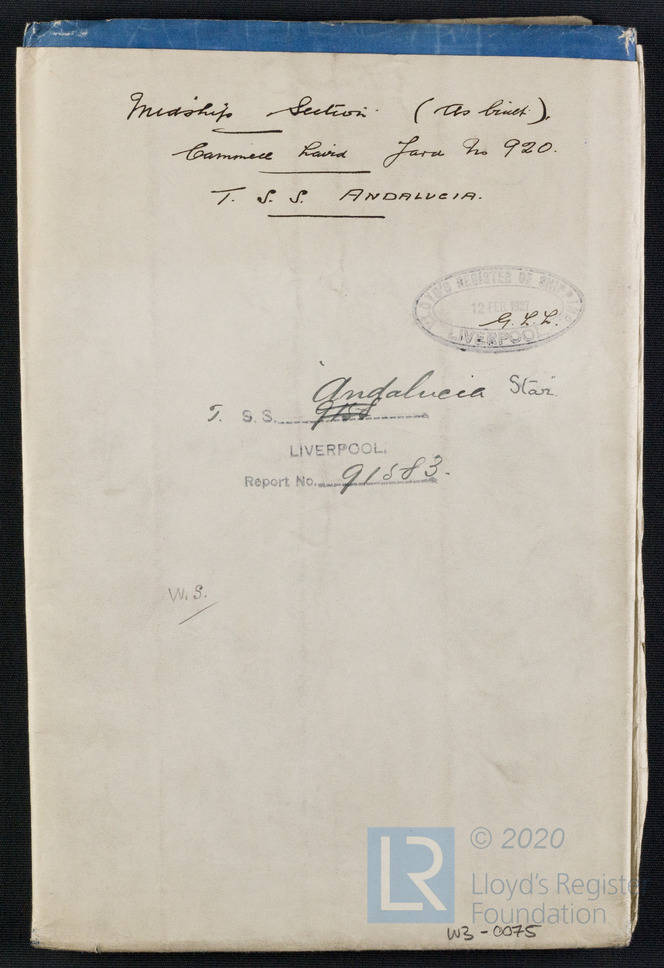 Midship Section (As built).
Cammell Laird Yard No 920.
T. S. S. ANDALUCIA.
LLOYD'S REGISTER OF SHIPPING
12 FEB 1927
G. L. L.
LIVERPOOL
"Andalucia Star"
T. S. S. 915
LIVERPOOL.
Report No. 91583.
W. S.
LR
© 2020
Lloyd's Register
Foundation
W3-0075